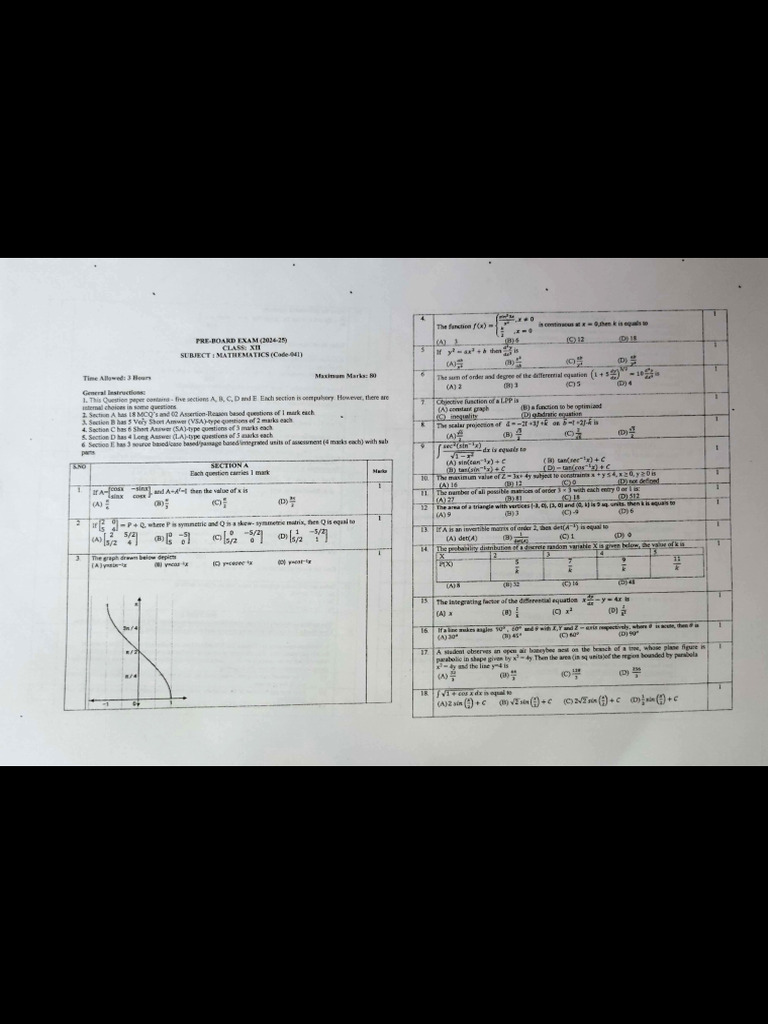 PRE-BOARD EXAM (2024-25)
CLASS: XII
SUBJECT : MATHEMATICS (Code-041)
Time Allowed: 3 Hours Maximum Marks: 80
General Instructions:
1. This Question paper contains - five sections A, B, C, D and E. Each section is compulsory. However, there are
internal choices in some questions.
2. Section A has 18 MCQ's and 02 Assertion-Reason based questions of 1 mark each.
3. Section B has 5 Very Short Answer (VSA)-type questions of 2 marks each.
4. Section C has 6 Short Answer (SA)-type questions of 3 marks each.
5. Section D has 4 Long Answer (LA)-type questions of 5 marks each.
6 Section E has 3 source based/case based/passage based/integrated units of assessment (4 marks each) with sub
parts
S.NO SECTION A Marks
Each question carries 1 mark
1 If A=[cosx −sinx; sinx cosx], and A+A′=I then the value of x is 1
(A) π/6 (B) π/3 (C) (D)
2 If [2 0; 5 4] = P + Q, where P is symmetric and Q is a skew- symmetric matrix, then Q is equal to 1
(A) [2 5/2; 5/2 4] (B) [0 −5; 5 0] (C) [0 −5/2; 5/2 0] (D) [1 −5/2; 5/2 1]
3 The graph drawn below depicts 1
(A) y=sin⁻¹x (B) y=cos⁻¹x (C) y=cosec⁻¹x (D) y=cot⁻¹x
π
3π/4
π/2
π/4
−1 0 1
4. The function f(x) = { , x ≠ 0; k/2 , x = 0 is continuous at x = 0, then k is equals to 1
(A) 3 (B) 6 (C) 12 (D) 18
5 If y² = ax² + b then d²y/dx² is 1
(A) (B) (C) (D)
6 The sum of order and degree of the differential equation (1 + 5 dy/dx)^3/2 = 10 is 1
(A) 2 (B) 3 (C) 5 (D) 4
7 Objective function of a LPP is 1
(A) constant graph (B) a function to be optimized
(C) inequality (D) quadratic equation
8 The scalar projection of on is 1
(A) (B) (C) (D)
9 ∫ sec²(sin⁻¹x)/√1 − x² dx is equals to 1
(A) sin(tan⁻¹x) + C (B) tan(sec⁻¹x) + C
(B) tan(sin⁻¹x) + C (D) − tan(cos⁻¹x) + C
10. The maximum value of Z = 3x+ 4y subject to constraints x + y ≤ 4, x ≥ 0, y ≥ 0 is 1
(A) 16 (B) 12 (C) 0 (D) not defined
11. The number of all possible matrices of order 3 × 3 with each entry 0 or 1 is: 1
(A) 27 (B) 81 (C) 18 (D) 512
12 The area of a triangle with vertices (-3, 0), (3, 0) and (0, k) is 9 sq. units. then k is equals to 1
(A) 9 (B) 3 (C) -9 (D) 6
13. If A is an invertible matrix of order 2, then det(A⁻¹) is equal to 1
(A) det(A) (B) 1/det(A) (C) 1 (D) 0
14. The probability distribution of a discrete random variable X is given below, the value of k is 1
X 2 3 4 5
P(X) 5/k 7/k 9/k 11/k
(A) 8 (B) 32 (C) 16 (D) 48
15 The integrating factor of the differential equation x dy/dx − y = 4x is 1
(A) x (B) 1/x (C) x² (D)
16. If a line makes angles 90°, 60° and θ with X, Y and Z − axis respectively, where θ is acute, then θ is 1
(A) 30° (B) 45° (C) 60° (D) 90°
17. A student observes an open air honeybee nest on the branch of a tree, whose plane figure is 1
parabolic in shape given by x² = 4y. Then the area (in sq units) of the region bounded by parabola
x² = 4y and the line y=4 is
(A) 32/3 (B) 64/3 (C) 128/3 (D) 256/3
18. ∫ √1 + cos x dx is equal to 1
(A) 2 sin (x/2) + C (B) √2 sin (x/2) + C (C) 2√2 sin (x/2) + C (D) sin (x/2) + C